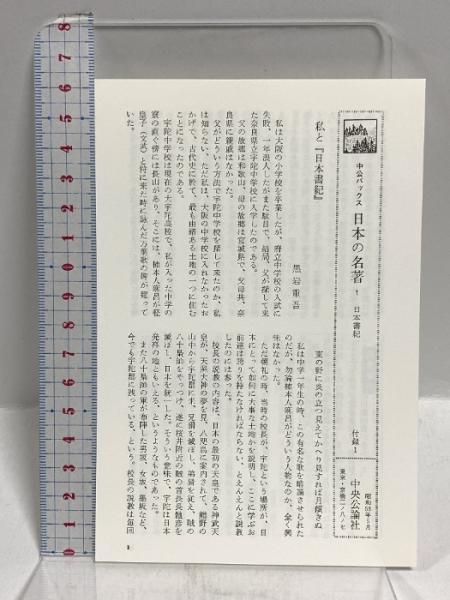 中公バックス 日本の名著 1 日本書紀
付録1
中央公論社
昭和58年5月
東京・京橋二ノ八ノ七
私と『日本書紀』
黒岩重吾
私は大阪の小学校を卒業したが、府立中学校の入試に
失敗、一年浪人したがまた駄目で、結局、父が探して来
た奈良県立宇陀中学校に入学したのである。
父の故郷は和歌山、母の故郷は宮城県で、父母共、奈
良県に親戚はなかった。
父がどういう方法で宇陀中学校を探して来たのか、私
は知らない。ただ私は、大阪の中学校に入れなかったお
かげで、古代史に於て、最も由緒ある土地の一つに住む
ことになったのである。
宇陀中学校は現在の大宇陀高校で、私が入った中学の
寮の直ぐ傍には長山があり、そこには、柿本人麻呂が軽
皇子（文武）と狩に来た時に詠んだ万葉歌の碑が建って
いた。
東の野に炎の立つ見えてかへり見すれば月傾きぬ
私は中学一年生の時、この有名な歌を暗誦させられた
のだが、勿論柿本人麻呂がどういう人物なのか、全く興
味はなかった。
ただ朝礼の時、当時の校長が、宇陀という場所が、日
本にとって如何に大事な土地かを説明し、ここに学ぶお
前達は誇りを持たなければならない、とえんえんと説教
したのには参った。
校長の説教の内容は、日本の最初の天皇である神武天
皇が、天照大神の夢を見、八咫烏に案内されて、熊野の
山中から宇陀郡に来、兄猾を滅ぼし、弟猾を従え、賊の
八十梟帥をやっつけ、遂に桜井附近の賊の酋長長髄彦を
滅ぼし、日本を統一した。そういう意味で、宇陀は日本
発祥の地といえる、というようなものであった。
また八十梟帥の軍が布陣した男坂、女坂、墨坂など、
今でも宇陀郡に残っている、という。校長の説教は毎回
1
0 1 2 3 4 5 6 7 8